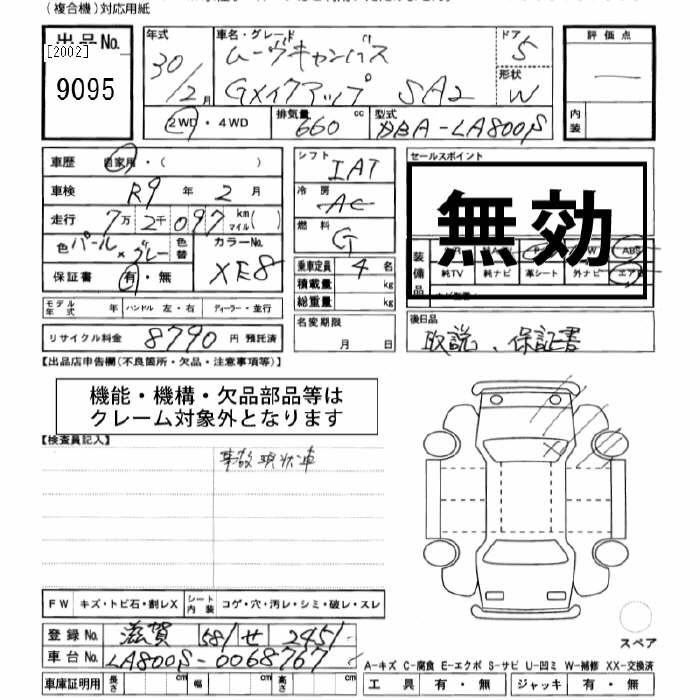 (複合機)対応用紙
出品No. [2002] 9095
年式 30/12月
車名・グレード ムーヴキャンバス Gメイクアップ SA2
ドア 5
形状 W
2WD・4WD
排気量 660 cc
型式 DBA-LA800S
評価点 —
内装
車歴 自家用・( )
車検 R9 年 2 月
走行 7万2千097 km マイル( )
色 パール×グレー 色替
カラーNo. XE8
保証書 有・無
モデル年式 年 ハンドル 左・右 ディーラー・並行
リサイクル料金 8790 円 預託済
シフト IAT
冷房 AC
燃料 G
乗車定員 4 名
積載量 kg
総重量 kg
名変期限 月 日
セールスポイント
無効
装備品 ABS
純TV 純ナビ 革シート 外ナビ エアB
後日品
取説、保証書
【出品店申告欄(不良箇所・欠品・注意事項等)】
機能・機構・欠品部品等は
クレーム対象外となります
【検査員記入】
事故現状車
FW キズ・トビ石・割レX シート内装 コゲ・穴・汚レ・シミ・破レ・スレ
登録No. 滋賀 581 せ 2451
車台No. LA800S-0068767
車庫証明用 長さ 幅 高さ
スペア
A-キズ C-腐食 E-エクボ S-サビ U-凹ミ W-補修 XX-交換済
工具 有・無 ジャッキ 有・無